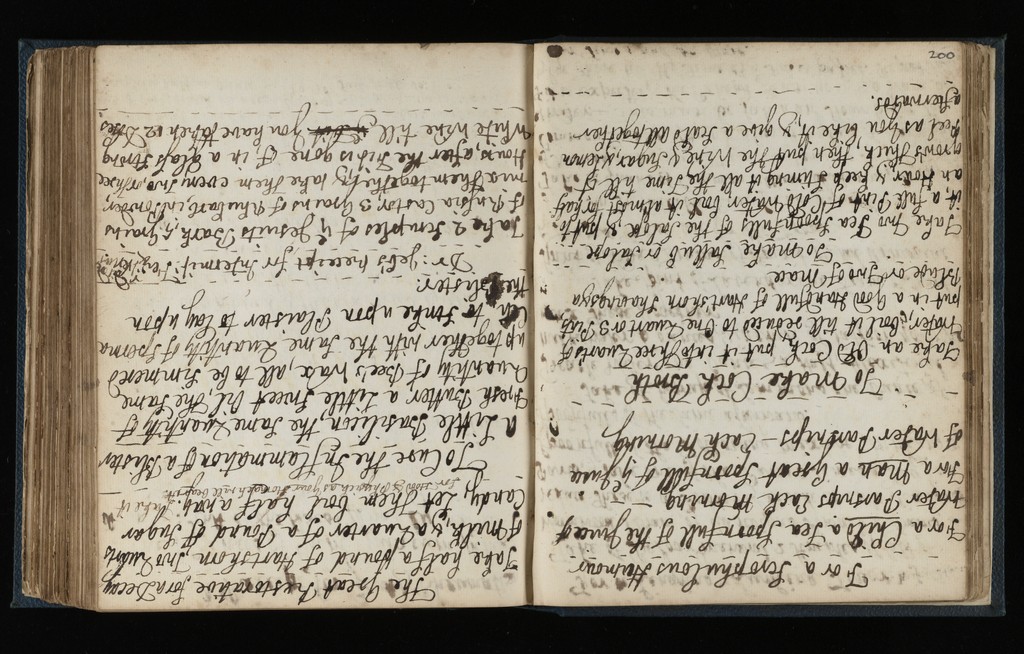 For a Scrophulous Humour
For a Child a Tea Spoonfull of the Juice of
Water Parsnips Each Morning —
For a Man a Great Spoonfull of ye Juice
of Water Parsnips — Each Morning
To make Cock Broth
Take an Old Cock put it into Three Quarts of
Water, boil it till reduced to One Quart or 3 Pints,
put in a Good Handfull of Hartshorn Shavings & a
Blade or Two of Mace
To make Sallup or Salope
Take Two Tea Spoonfulls of the Salope & put to
it, a full Pint of Cold Water boil it almost or half
an Hour & keep stirring it all the Time till it
grows thick, then put the Wine, Sugar, & Lemon
Peel as you like it, & give a Scald all together
afterwards.
The Great Restorative for a Decay
Take half a Pound of Hartshorn Two Quarts
of Milk, & a Quarter of a Pound of Sugar
Candy Let them boil half away Take it
as your Stomach will bear it
To Cure the Inflammation of a Blister
a Little Basilicon, the Same Quantity of
Fresh Butter a Little Sweet Oil The Same
Quantity of Bees Wax, all to be Simmered
up together with the Same Quantity of Sperma
Ceti to Strike upon Plaister to lay upon
the Blister.
Dr: receipt for Intermit:
Take 2 Scruples of ye Jesuits Bark, 5 Grains
of Rusia Castor, 3 Grains of Rhubarb, in Powder,
mix them together, & take them every Two, or Three
Hours, after the Fit is gone off in a Glass Strong
White Wine till you have taken 12 Doses.
200